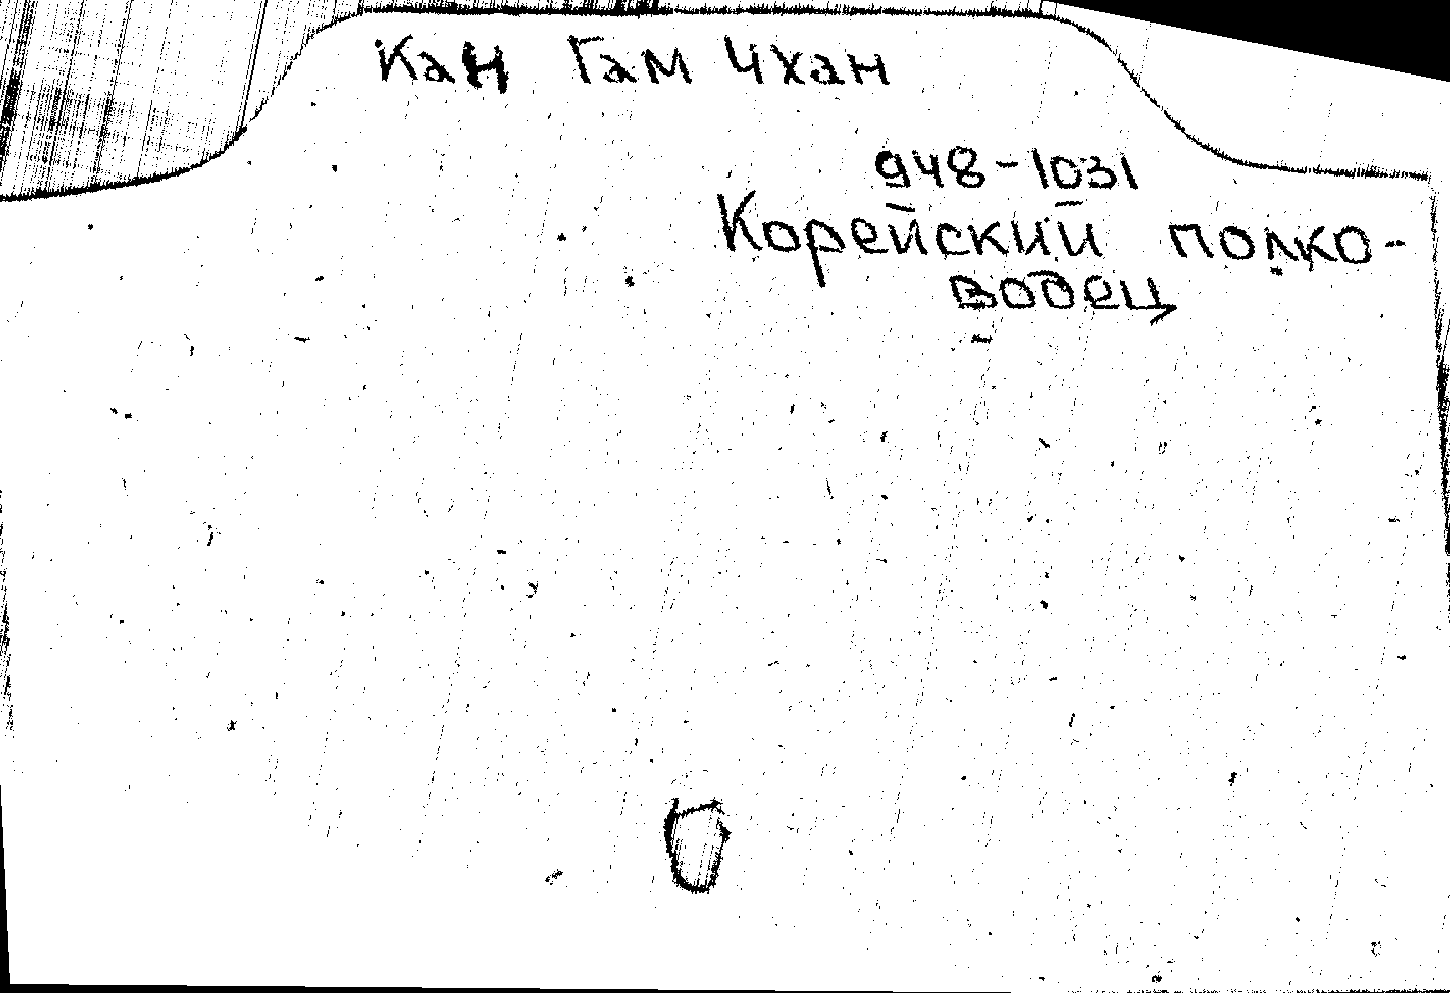 Кан Гам Чхан
948-1031
Корейский полко-
водец